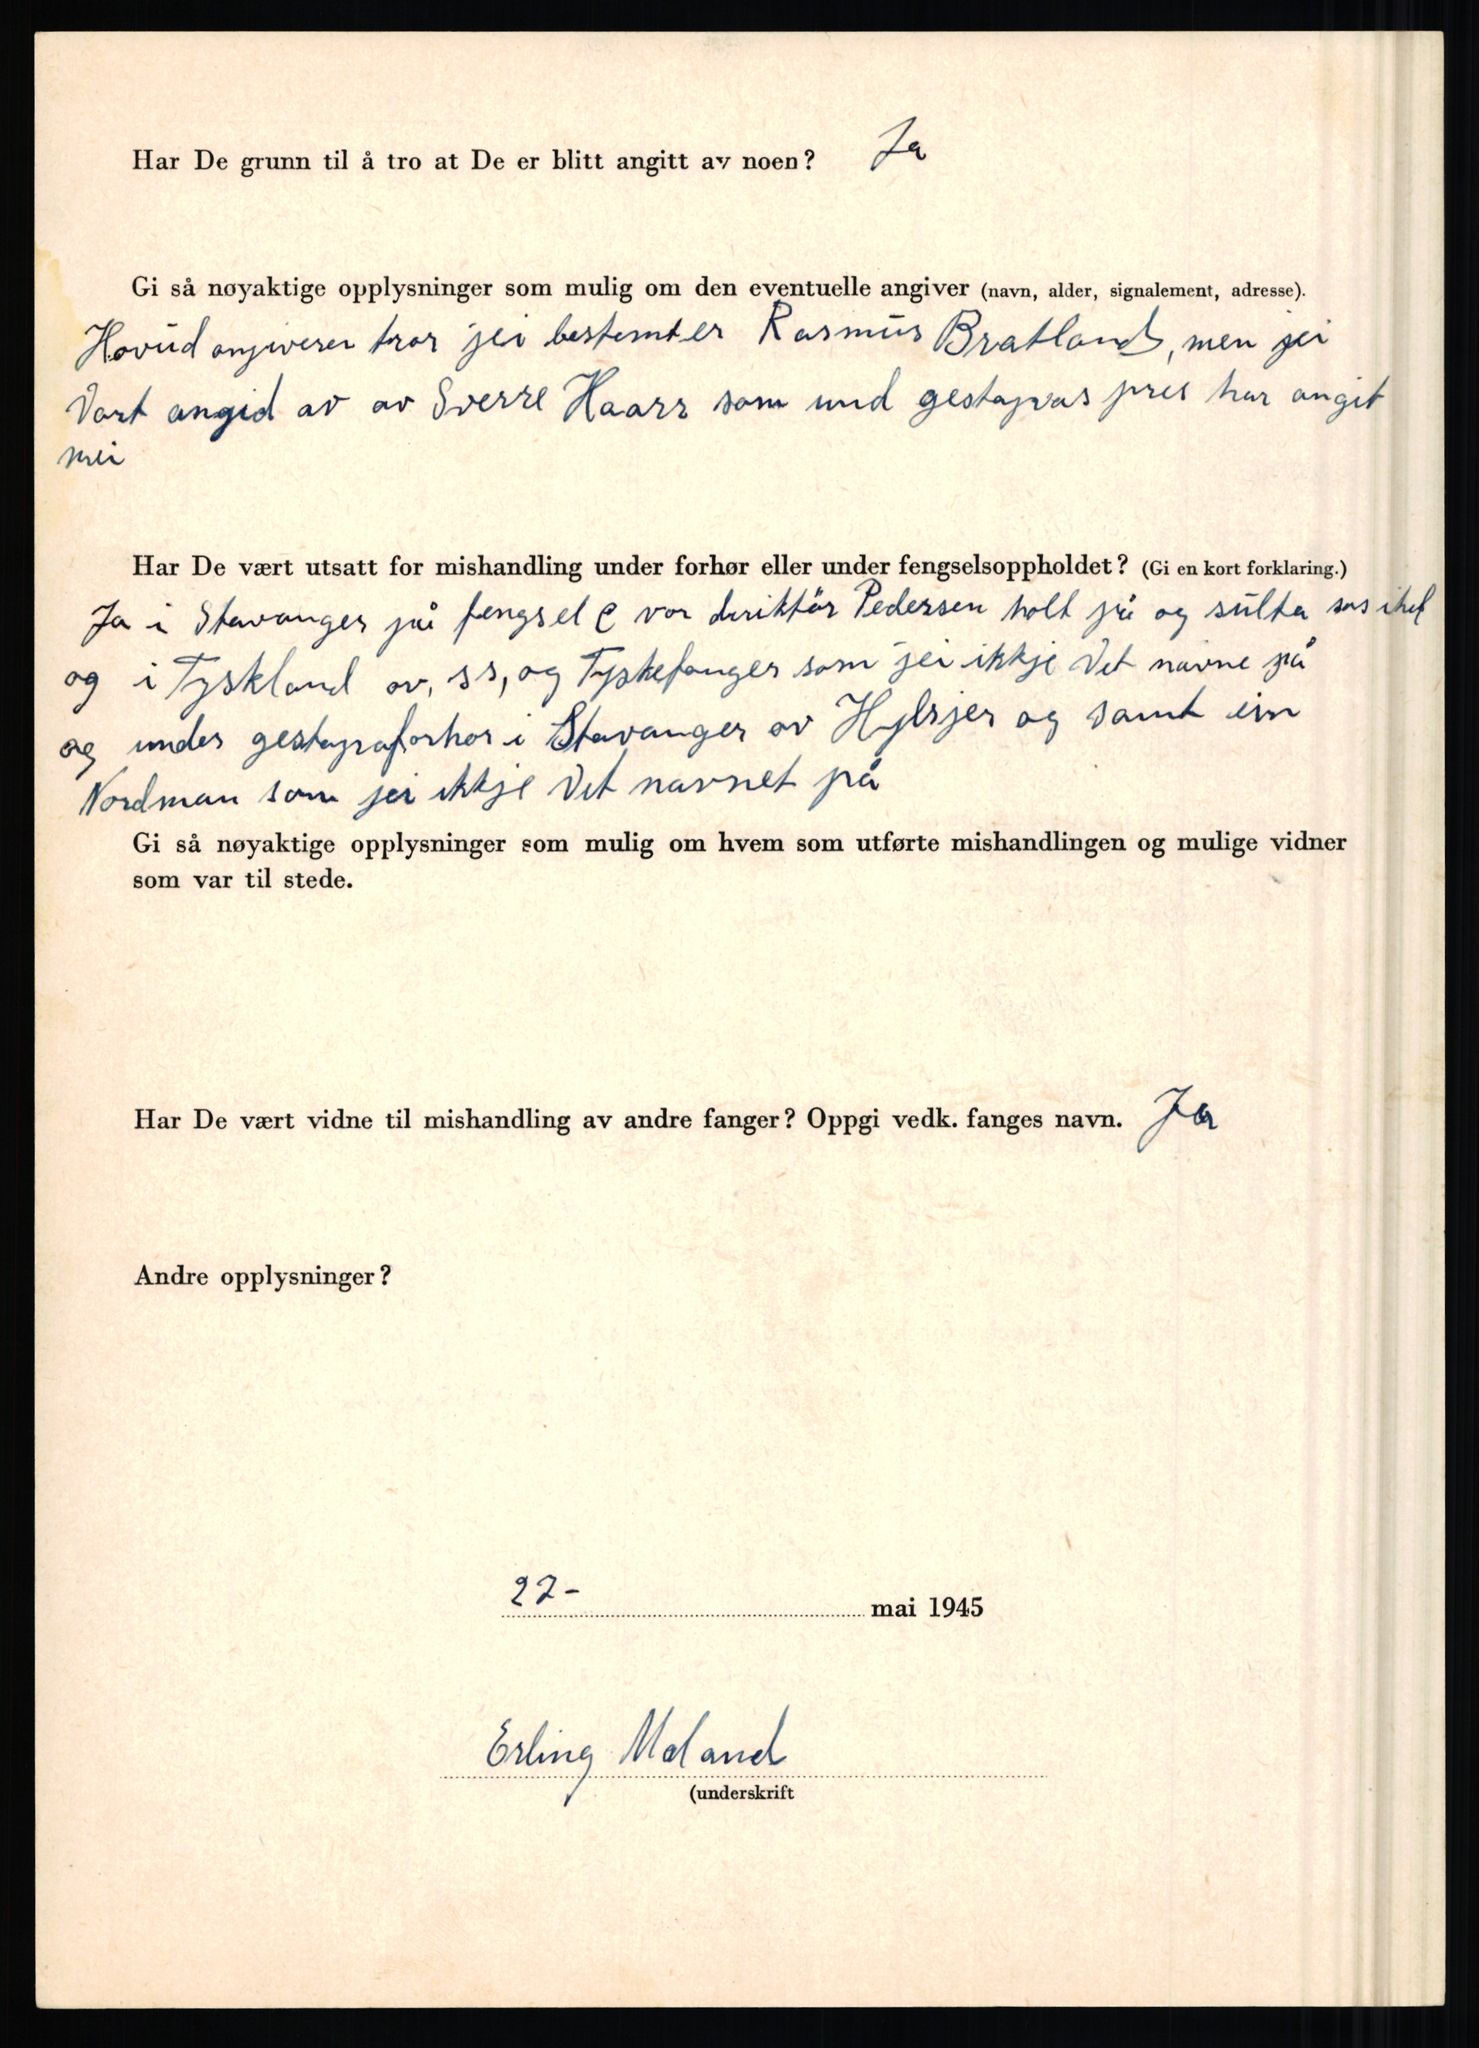 Har De grunn til å tro at De er blitt angitt av noen? Ja
Gi så nøyaktige opplysninger som mulig om den eventuelle angiver (navn, alder, signalement, adresse).
Hovud angiveren tror jei bestemt er Rasmus Bratland, men jei
vart angid av av Sverre Haarr som und gestapos pres har angit
mei
Har De vært utsatt for mishandling under forhør eller under fengselsoppholdet? (Gi en kort forklaring.)
Ja i Stavanger på fengsel vor diriktør Pedersen holt på og sulta
og i Tyskland av, ss, og Tyskefanger som jei ikkje vet navne på
og under gestapoforhør i Stavanger av og samt ein
Nordman som jei ikkje vet navnet på
Gi så nøyaktige opplysninger som mulig om hvem som utførte mishandlingen og mulige vidner
som var til stede.
Har De vært vidne til mishandling av andre fanger? Oppgi vedk. fanges navn. Ja
Andre opplysninger?
22- mai 1945
Erling Maland
(underskrift